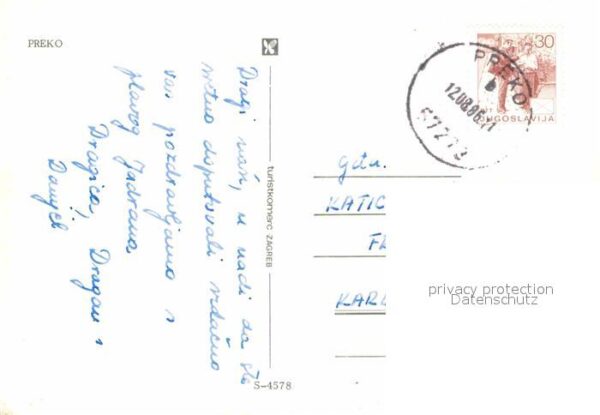 PREKO
Dragi naši, u nadi da ste
sretno doputovali srdačno
vas pozdravljamo s
plavog Jadrana
Dragica, Dragan i
Danijel
turistkomerc ZAGREB
S-4578
30
JUGOSLAVIJA
PREKO
12.08.86-11
57273
Gdu.
KATIC
KARL
privacy protection
Datenschutz